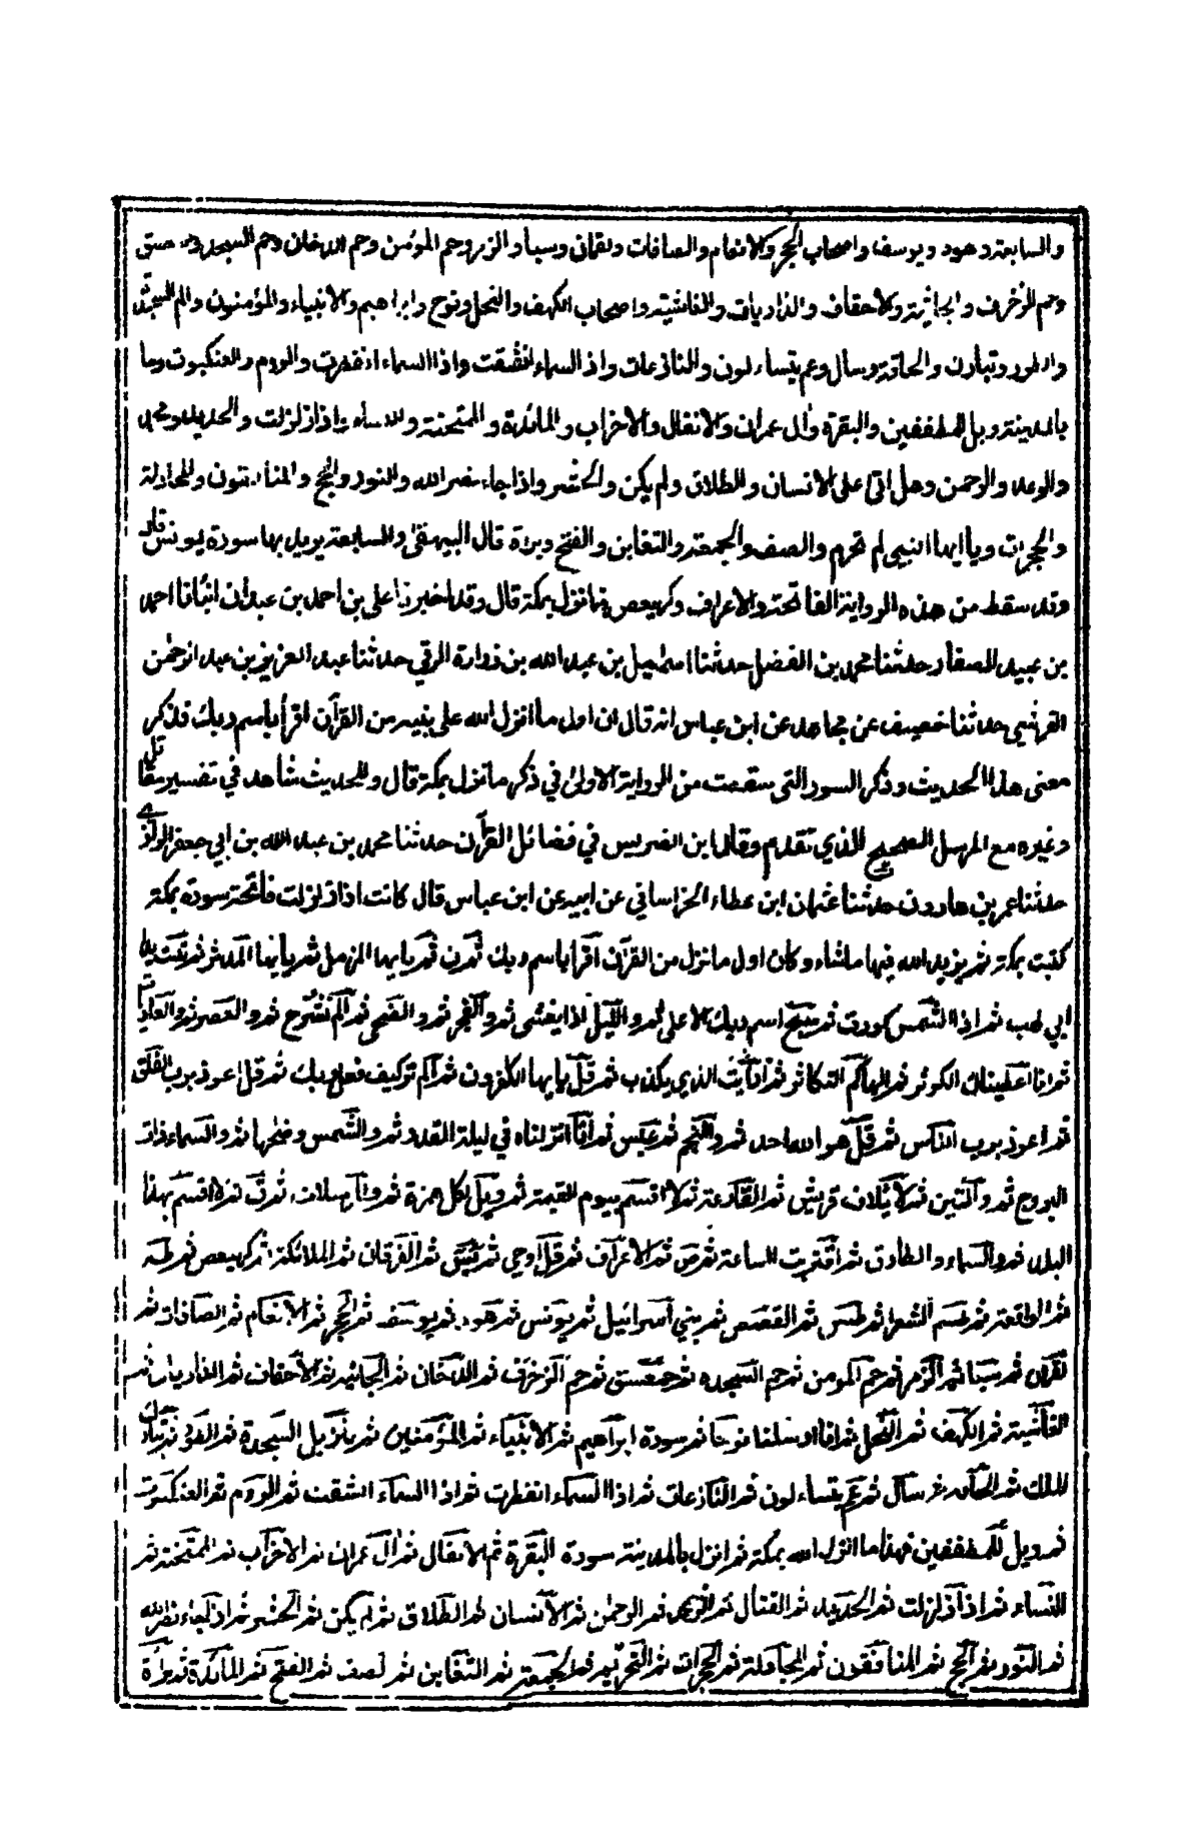 والسابعة وهود ويوسف واصحاب الحجر والانعام والصافات ولقمان وسبأ والزمر وحم المؤمن وحم الدخان وحم السجدة وحم عسق
وحم الزخرف والجاثية والاحقاف والذاريات والغاشية واصحاب الكهف والنحل ونوح وابراهيم والانبياء والمؤمنون والم السجدة
والطور وتبارك والحاقة وسأل وعم يتساءلون والنازعات واذا السماء انشقت واذا السماء انفطرت والروم والعنكبوت وما
بالمدينة ويل للمطففين والبقرة وأل عمران والانفال والاحزاب والمائدة والممتحنة والنساء واذا زلزلت والحديد ومحمد
والرعد والرحمن وهل اتى على الانسان والطلاق ولم يكن والحشر واذا جاء نصر الله والنور والحج والمنافقون والمجادلة
والحجرات ويا ايها النبي لم تحرم والصف والجمعة والتغابن والفتح وبراة قال البيهقي والسابعة يريد بها سورة يونس قال
وقد سقط من هذه الرواية الفاتحة والاعراف وكهيعص فيما نزل بمكة قال وقد اخبرنا علي بن احمد بن عبدان انبأنا احمد
بن عبيد الصفار حدثنا محمد بن الفضل حدثنا اسمعيل بن عبد الله بن زرارة الرقي حدثنا عبد العزيز بن عبد الرحمن
القرشي حدثنا خصيف عن مجاهد عن ابن عباس انه قال ان اول ما انزل الله على نبيه من القرآن اقرأ باسم ربك فذكر
معنى هذا الحديث وذكر السور التي سقطت من الرواية الاولى في ذكر ما نزل بمكة قال وللحديث شاهد في تفسير مقاتل
وغيره مع المرسل الصحيح الذي تقدم وقال ابن الضريس في فضائل القرآن حدثنا محمد بن عبد الله بن ابي جعفر الرازي
حدثنا عمر بن هارون حدثنا عثمان ابن عطاء الخراساني عن ابيه عن ابن عباس قال كانت اذا نزلت فاتحة سورة بمكة
كتبت بمكة ثم يزيد الله فيها ما شاء وكان اول ما نزل من القرآن اقرأ باسم ربك ثم ن ثم يا يها المزمل ثم يا يها المدثر ثم تبت يدا
ابي لهب ثم اذا الشمس كورت ثم سبح اسم ربك الاعلى ثم والليل اذا يغشى ثم والفجر ثم والضحى ثم الم نشرح ثم والعصر ثم والعاديات
ثم انا اعطيناك الكوثر ثم الهاكم التكاثر ثم ارأيت الذي يكذب ثم قل يا يها الكفرون ثم الم تر كيف فعل ربك ثم قل اعوذ برب الفلق
ثم اعوذ برب الناس ثم قل هو الله احد ثم والنجم ثم عبس ثم انا انزلناه في ليلة القدر ثم والشمس وضحها ثم والسماء ذات
البروج ثم والتين ثم لايلاف قريش ثم القارعة ثم لا اقسم بيوم القيمة ثم ويل لكل همزة ثم والمرسلات ثم ق ثم لا اقسم بهذا
البلد ثم والسماء والطارق ثم اقتربت الساعة ثم ص ثم الاعراف ثم قل اوحي ثم يس ثم الفرقان ثم الملائكة ثم كهيعص ثم طه
ثم الواقعة ثم طسم الشعراء ثم طس ثم القصص ثم بني اسرائيل ثم يونس ثم هود ثم يوسف ثم الحجر ثم الانعام ثم الصافات ثم
لقمان ثم سبا ثم الزمر ثم حم المومن ثم حم السجدة ثم حمعسق ثم حم الزخرف ثم الدخان ثم الجاثية ثم الاحقاف ثم الذاريات ثم
الغاشية ثم الكهف ثم النحل ثم انا ارسلنا نوحا ثم سورة ابراهيم ثم الانبياء ثم المؤمنين ثم تنزيل السجدة ثم الطور ثم تبارك
الملك ثم الحاقة ثم سأل ثم عم يتساءلون ثم النازعات ثم اذا السماء انفطرت ثم اذا السماء انشقت ثم الروم ثم العنكبوت
ثم ويل للمطففين فهذا ما انزل الله بمكة ثم انزل بالمدينة سورة البقرة ثم الانفال ثم ال عمران ثم الاحزاب ثم الممتحنة ثم
النساء ثم اذا زلزلت ثم الحديد ثم القتال ثم الرعد ثم الرحمن ثم الانسان ثم الطلاق ثم لم يكن ثم الحشر ثم اذا جاء نصر الله
ثم النور ثم الحج ثم المنافقون ثم المجادلة ثم الحجرات ثم التحريم ثم الجمعة ثم التغابن ثم لصف ثم الفتح ثم المائدة ثم براة